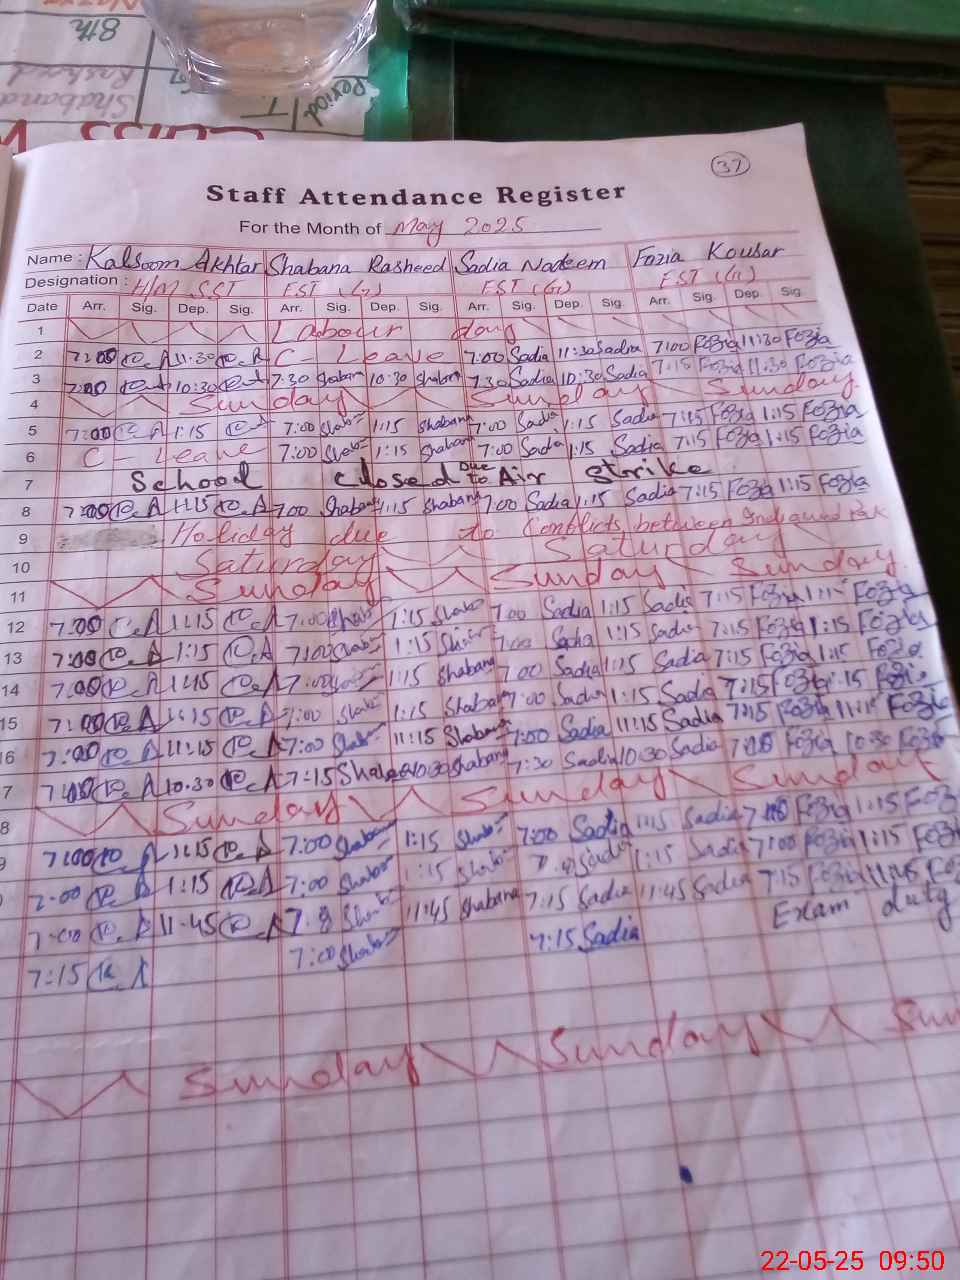 8th
Rasheed
Shabana
Period
T.
37
Staff Attendance Register
For the Month of May 2025
Name : Kalsoom Akhtar Shabana Rasheed Sadia Nadeem Fozia Kousar
Designation : H/M SST EST (G) EST (G) EST (G)
Date Arr. Sig. Dep. Sig. Arr. Sig. Dep. Sig. Arr. Sig. Dep. Sig. Arr. Sig. Dep. Sig.
1 Labour day
2 7:00 K.A 11:30 K.A C - Leave 7:00 Sadia 11:30 Sadia 7:00 Fozia 11:30 Fozia
3 7:00 10:30 7:30 Shabana 10:30 Shabana 7:30 Sadia 10:30 Sadia 7:15 Fozia 11:30 Fozia
4 Sunday Sunday Sunday
5 7:00 K.A 1:15 7:00 Shab 1:15 Shabana 7:00 Sadia 1:15 Sadia 7:15 Fozia 1:15 Fozia
6 C - Leave 7:00 Shab 1:15 Shabana 7:00 Sadia 1:15 Sadia 7:15 Fozia 1:15 Fozia
7 School closed Due to Air Strike
8 7:00 K.A 1:15 K.A 7:00 Shabana 1:15 Shabana 7:00 Sadia 1:15 Sadia 7:15 Fozia 1:15 Fozia
9 Holiday due to Conflicts between India and Pak
10 Saturday Saturday
11 Sunday Sunday Sunday
12 7:00 K.A 1:15 K.A 7:00 Shab 1:15 Shab 7:00 Sadia 1:15 Sadia 7:15 Fozia 1:15 Fozia
13 7:00 K.A 1:15 K.A 7:00 Shab 1:15 7:00 Sadia 1:15 Sadia 7:15 Fozia 1:15 Fozia
14 7:00 K.A 1:15 K.A 7:00 1:15 Shabana 7:00 Sadia 1:15 Sadia 7:15 Fozia 1:15 Fozia
15 7:00 K.A 1:15 K.A 7:00 Shab 1:15 Shabana 7:00 Sadia 1:15 Sadia 7:15 Fozia Fozia
16 7:00 K.A 11:15 K.A 7:00 Shab 11:15 Shabana 7:00 Sadia 11:15 Sadia Fozia 10:30 Fozia
7 K.A 10:30 K.A 7:15 Shabana 10:30 Shabana 7:30 Sadia 10:30 Sadia
8 Sunday Sunday Sunday
9 7:00 K.A 1:15 K.A 7:00 Shabana 1:15 Shab 7:00 Sadia 1:15 Sadia 7:00 Fozia 1:15 Fozia
7:00 K.A 1:15 K.A 7:00 Shabna 1:15 Shab Sadia 1:15 Sadia 7:00 Fozia 1:15 Fozia
7:00 K.A 11:45 K.A Shab 11:45 Shabana 7:15 Sadia 11:45 Sadia 7:15 Fozia
7:15 K.A 7:00 Shab 7:15 Sadia Exam duty
Sunday Sunday Sun
22-05-25 09:50